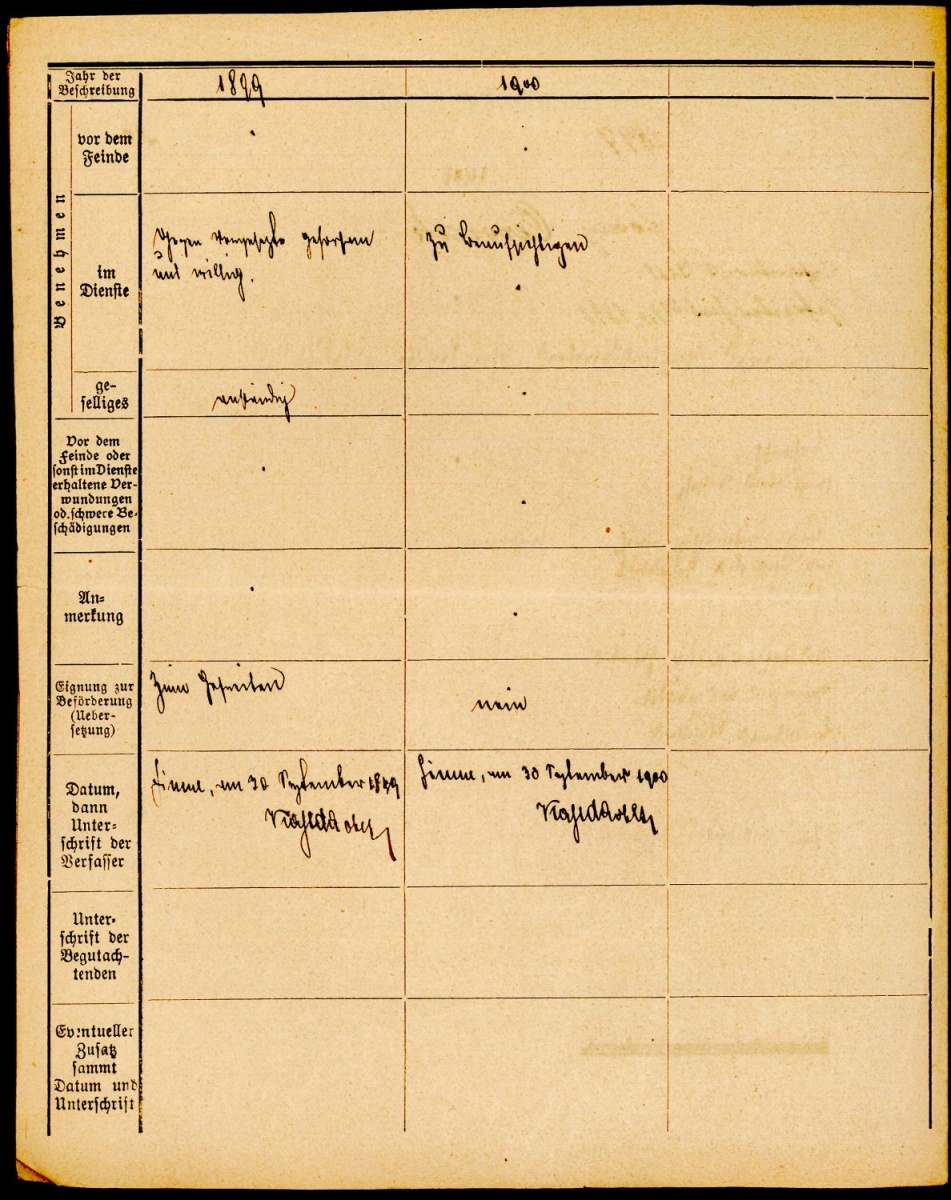 Jahr der
Beschreibung
1899
1900
Benehmen
vor dem
Feinde
im
Dienste
Gegen Vorgesetzte gehorsam
und willig.
zu beaufsichtigen
ge-
selliges
anständig
Vor dem
Feinde oder
sonst im Dienste
erhaltene Ver-
wundungen
od. schwere Be-
schädigungen
An-
merkung
Eignung zur
Beförderung
(Ueber-
setzung)
Zum Gefreiten
nein
Datum,
dann
Unter-
schrift der
Verfasser
Fiume, am 30 September 1899
Fiume, am 30 September 1900
Unter-
schrift der
Begutach-
tenden
Eventueller
Zusatz
sammt
Datum und
Unterschrift